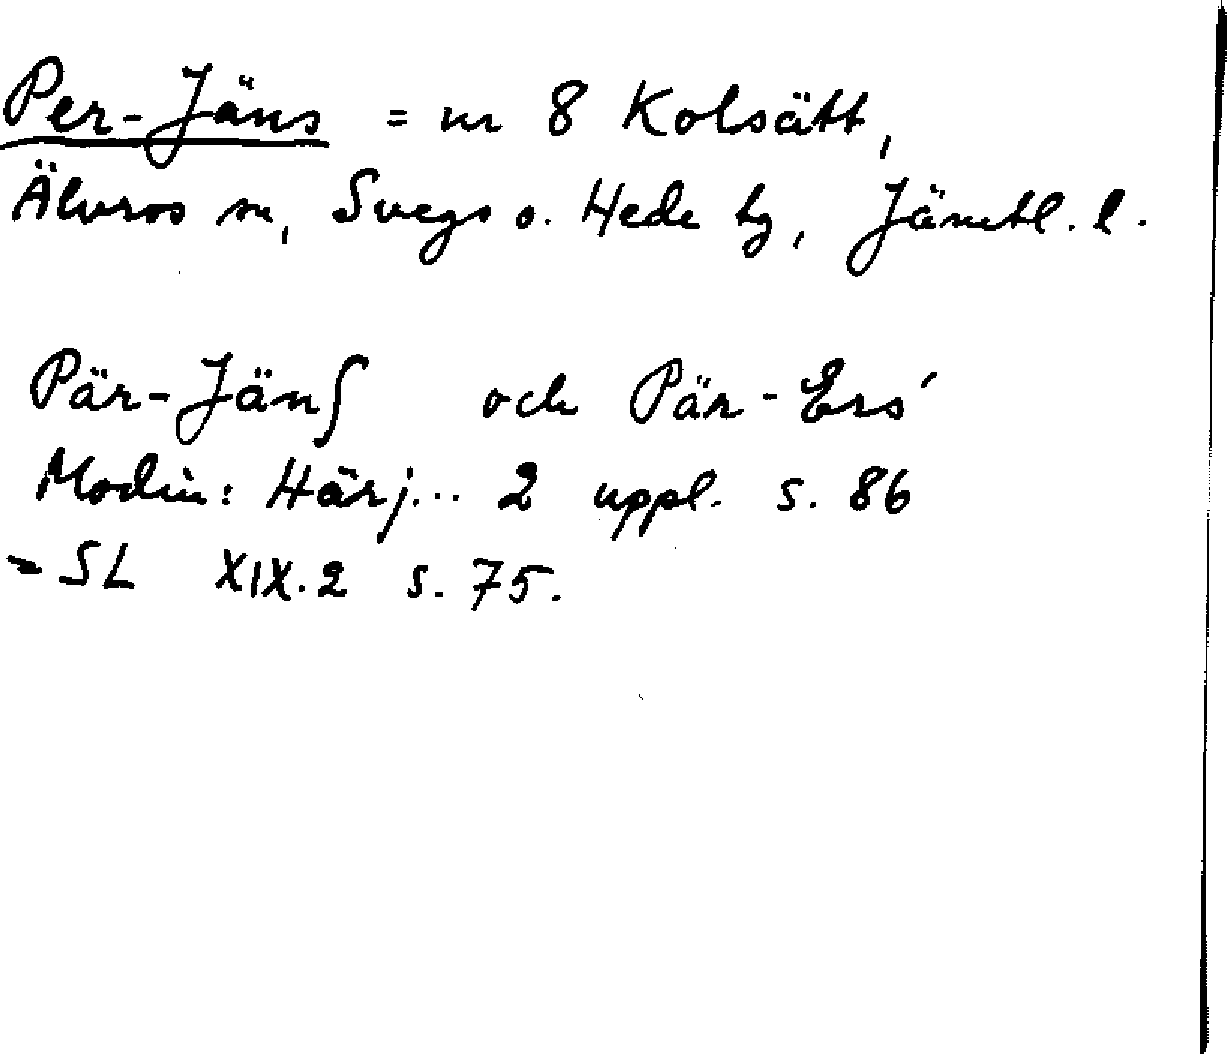 Per-Jäns = nr 8 Kolsätt,
Älvros sn, Svegs o. Hede tg, Jämtl. l.
Pär-Jänſ och Pär-Ers´
Modin: Härj... 2 uppl. s. 86
= SL XIX.2 s. 75.